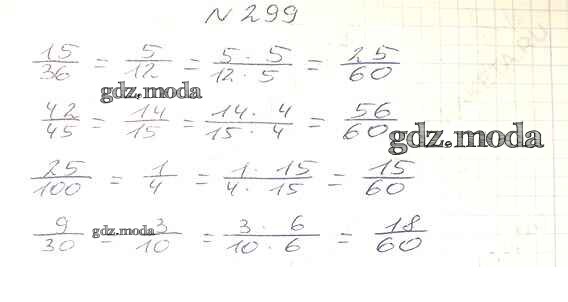 N 299
15/36 = 5/12 = 5 · 5/12 · 5 = 25/60
gdz.moda
42/45 = 14/15 = 14 · 4/15 · 4 = 56/60
gdz.moda
25/100 = 1/4 = 1 · 15/4 · 15 = 15/60
9/30 = 3/10 = 3 · 6/10 · 6 = 18/60
gdz.moda